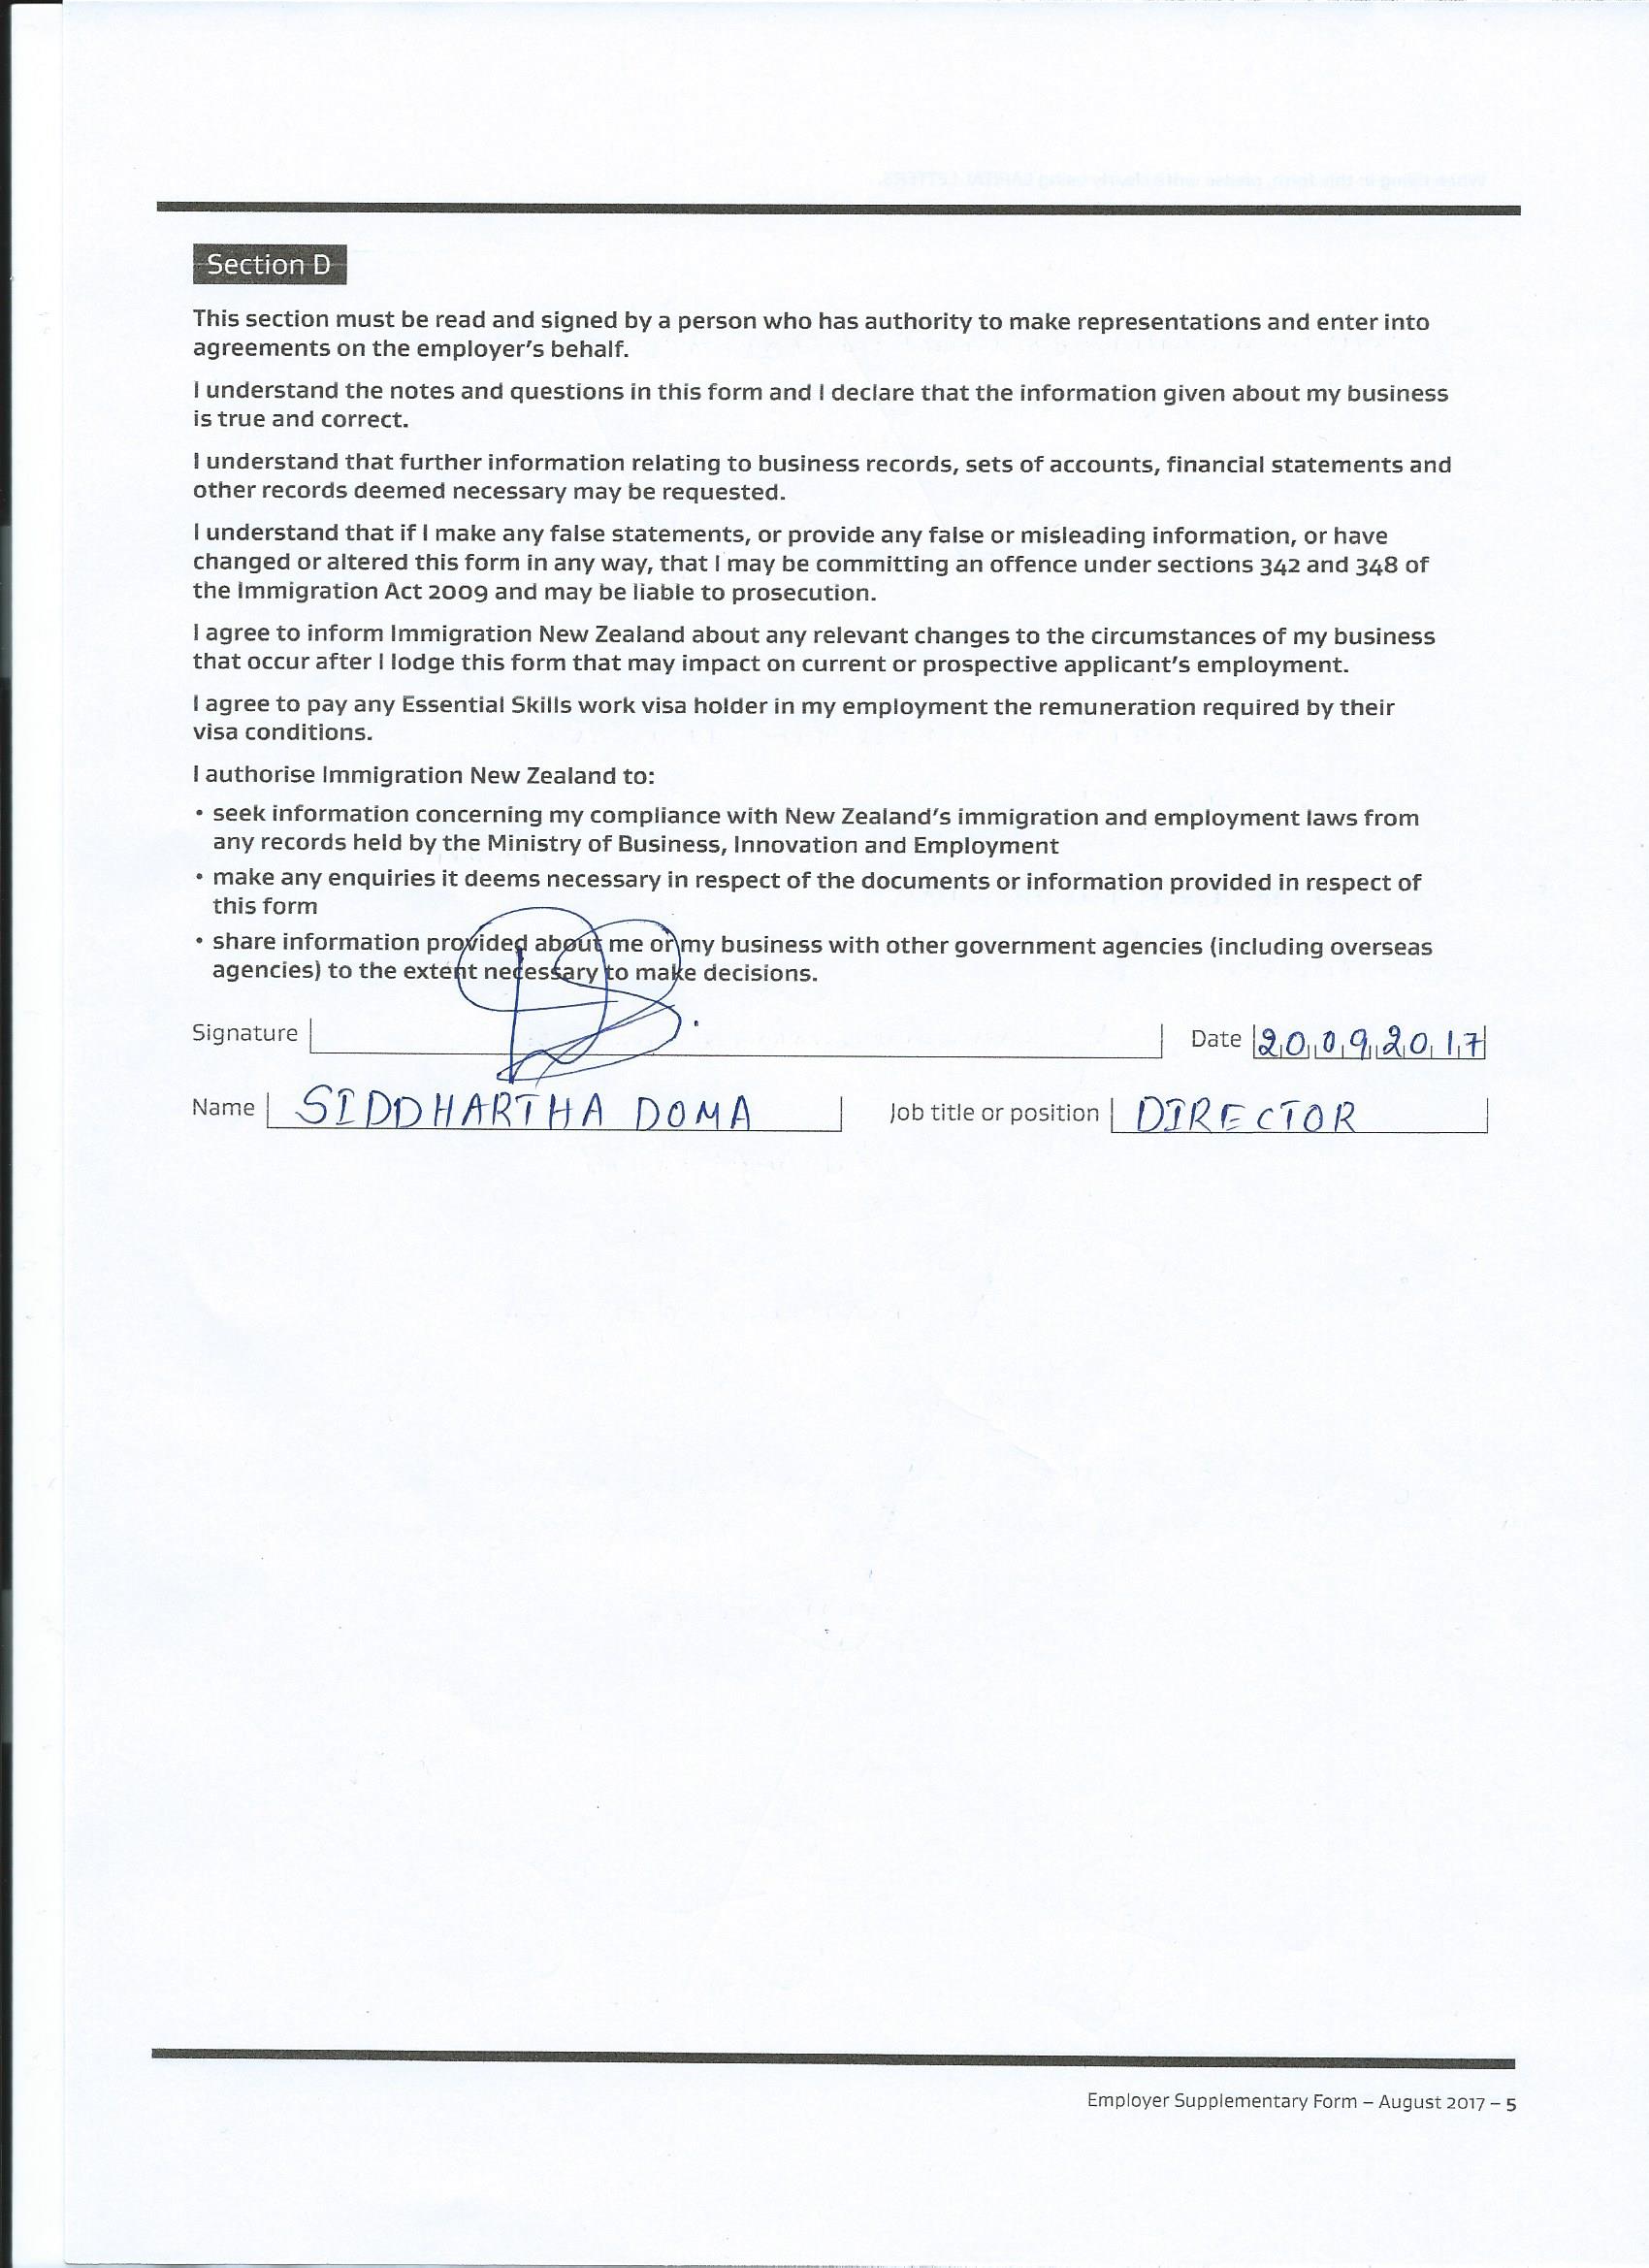 Section D
This section must be read and signed by a person who has authority to make representations and enter into
agreements on the employer's behalf.
I understand the notes and questions in this form and I declare that the information given about my business
is true and correct.
I understand that further information relating to business records, sets of accounts, financial statements and
other records deemed necessary may be requested.
I understand that if I make any false statements, or provide any false or misleading information, or have
changed or altered this form in any way, that I may be committing an offence under sections 342 and 348 of
the Immigration Act 2009 and may be liable to prosecution.
I agree to inform Immigration New Zealand about any relevant changes to the circumstances of my business
that occur after I lodge this form that may impact on current or prospective applicant's employment.
I agree to pay any Essential Skills work visa holder in my employment the remuneration required by their
visa conditions.
I authorise Immigration New Zealand to:
• seek information concerning my compliance with New Zealand's immigration and employment laws from
any records held by the Ministry of Business, Innovation and Employment
• make any enquiries it deems necessary in respect of the documents or information provided in respect of
this form
• share information provided about me or my business with other government agencies (including overseas
agencies) to the extent necessary to make decisions.
Signature Date 20 09 2017
Name SIDDHARTHA DOMA Job title or position DIRECTOR
Employer Supplementary Form – August 2017 – 5